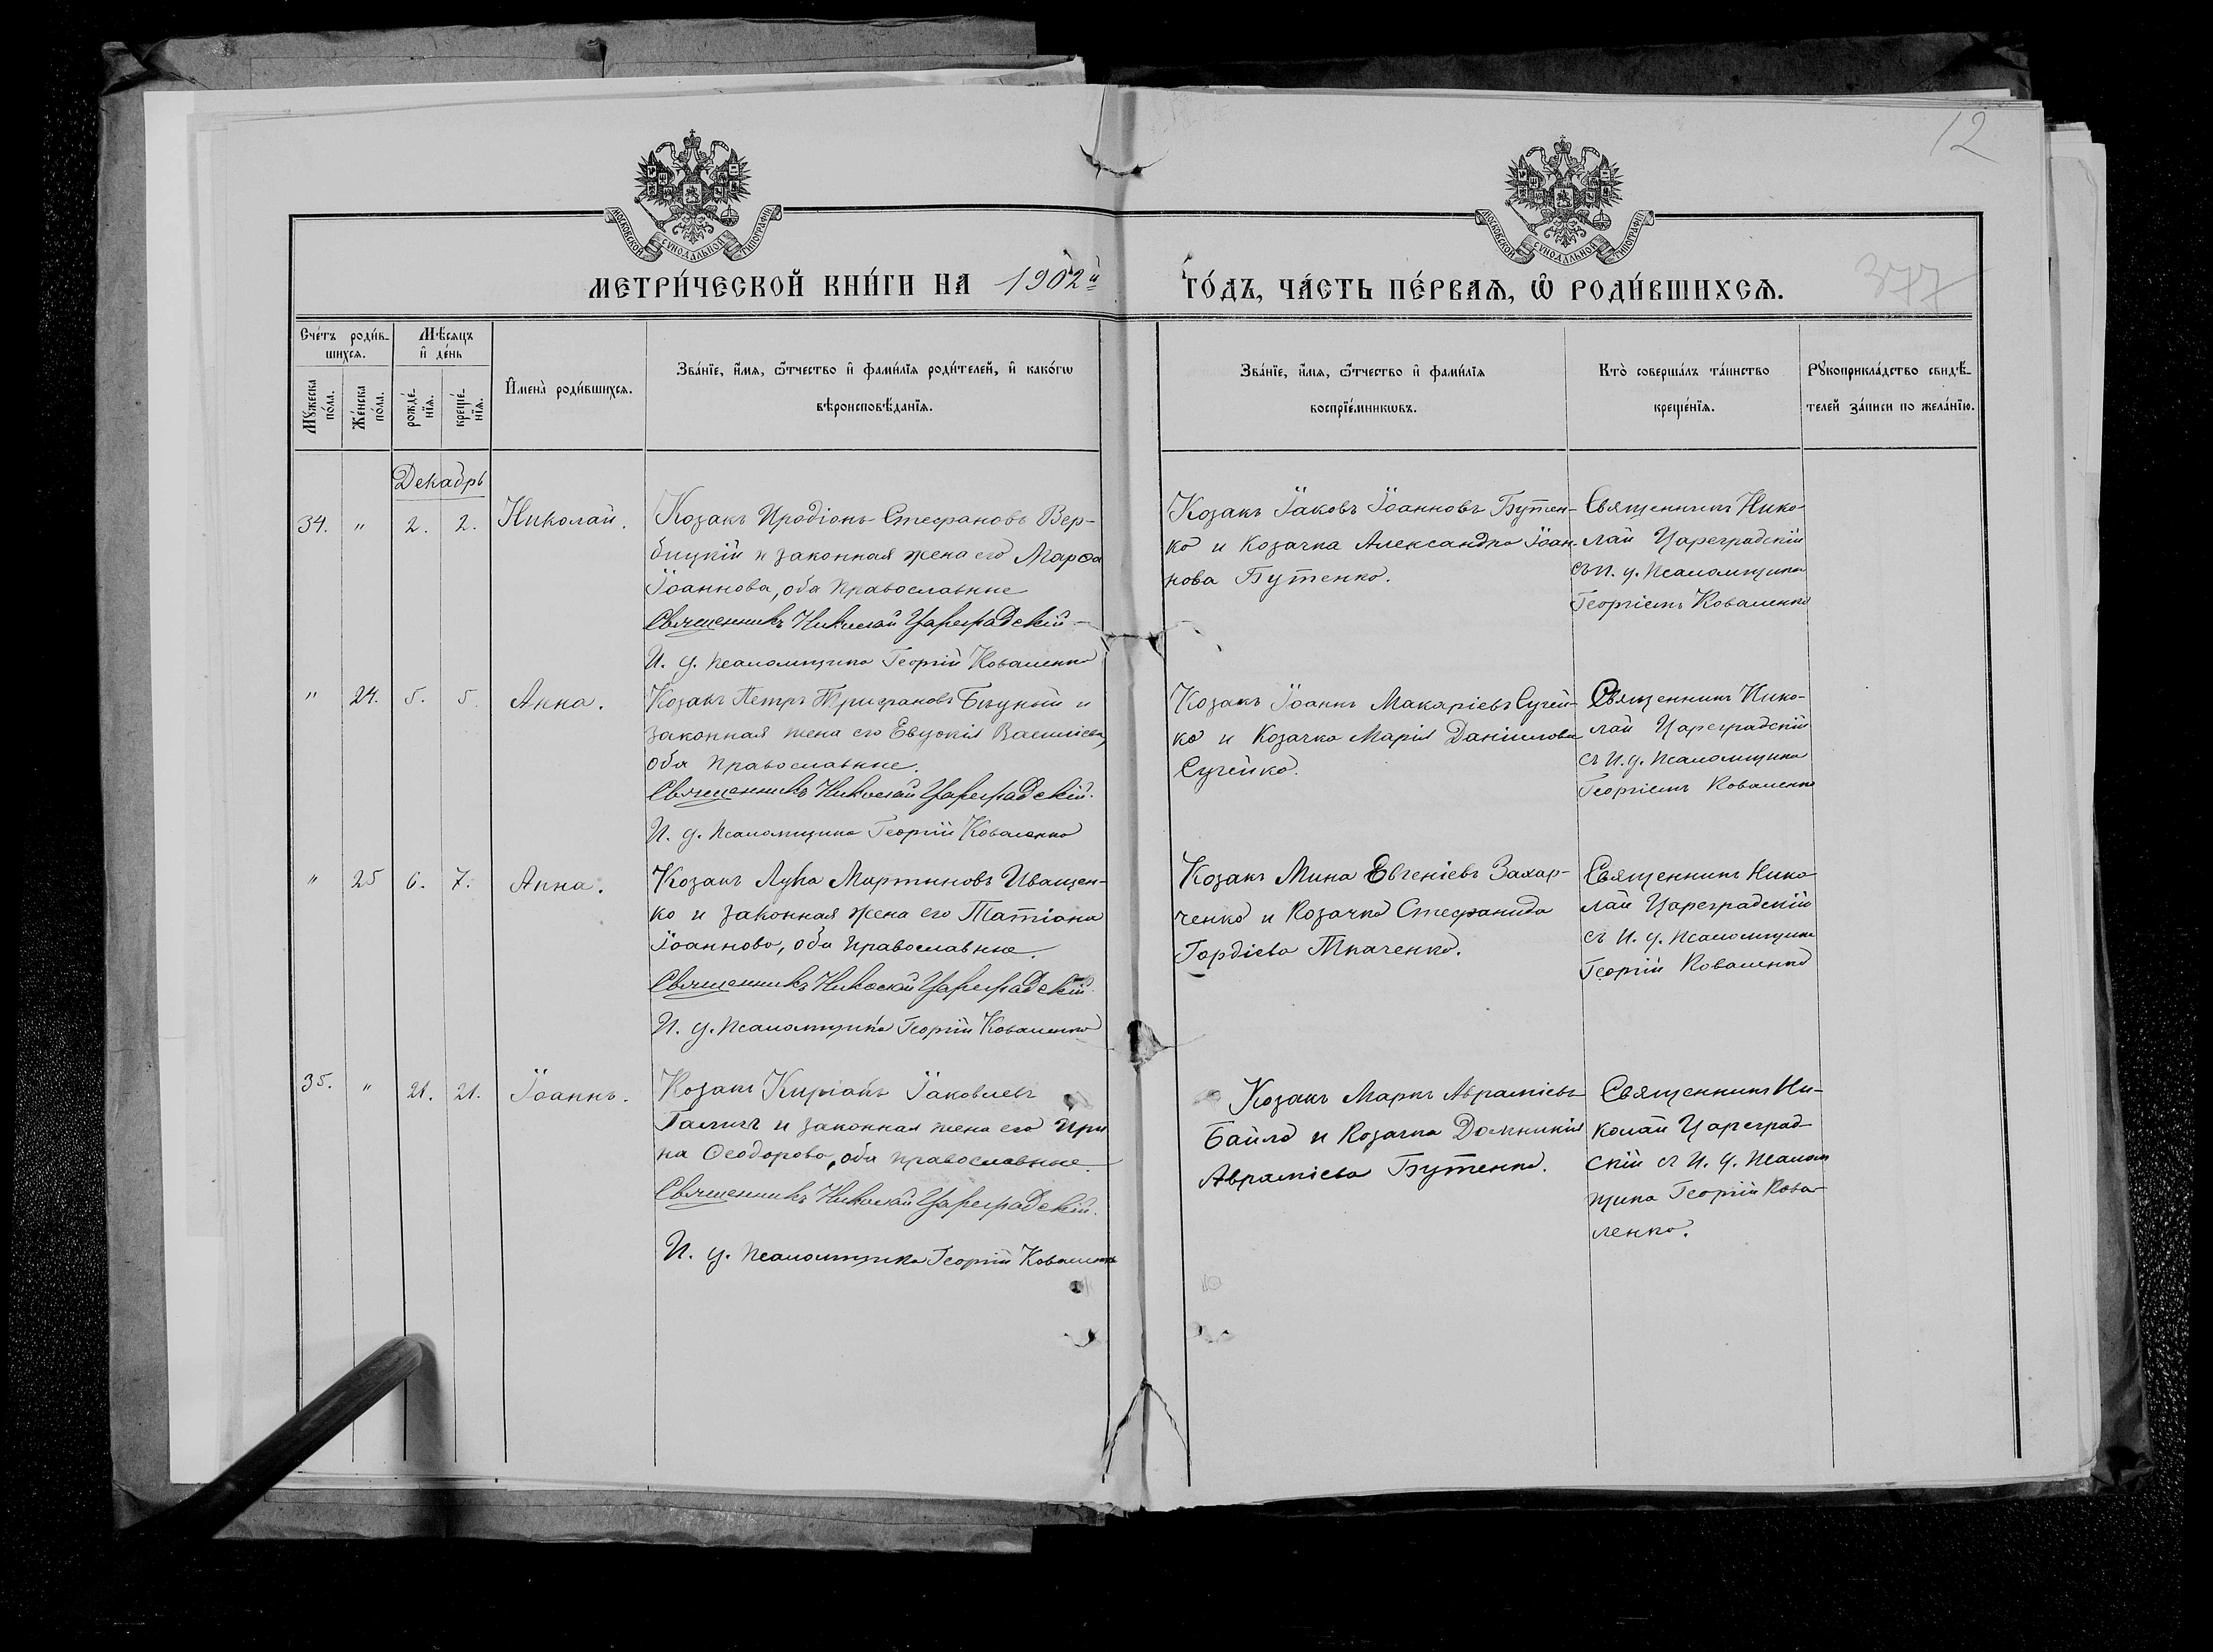 12
377
МОСКОВСКОЙ СѴНОДАЛЬНОЙ ТИПОГРАФІИ
МОСКОВСКОЙ СѴНОДАЛЬНОЙ ТИПОГРАФІИ
МЕТРИ́ЧЕСКОЙ КНИ́ГИ НА 1902й
ГО́ДЪ, ЧА́СТЬ ПЕ́РВАѦ, Ѡ҆ РОДИ́ВШИХСѦ.
Сче́тъ роди́в-
шихсѧ.
Мꙋ́жеска по́ла.
Же́нска по́ла.
Мѣ́сѧцъ
и҆ де́нь
рожде́-
нїѧ.
креще́-
нїѧ.
И҆мена̀ роди́вшихсѧ.
Зва́нїе, и҆́мѧ, ѻ҆́тчество и҆ фами́лїѧ роди́телей, и҆ како́гѡ
вѣроисповѣ́данїѧ.
Зва́нїе, и҆́мѧ, ѻ҆́тчество и҆ фами́лїѧ
воспрїе́мникѡвъ.
Кто̀ соверша́лъ та́инство
креще́нїѧ.
Рꙋкоприкла́дство свидѣ́-
телей за́писи по жела́нїю.
Декабрь
34. " 2. 2. Николай.
Козакъ Иродіонъ Стефановъ Вер-
бицкій и законная жена его Марѳа
Іоаннова, оба православные
Священникъ Николай Цареградскій
И. д. псаломщика Георгій Коваленко
Козакъ Іаковъ Іоанновъ Бутен-
ко и Козачка Александра Іоан-
нова Бутенко.
Священникъ Нико-
лай Цареградскій
съ и. д. псаломщика
Георгіемъ Коваленко
" 24. 5. 5. Анна.
Козакъ Петръ Трифановъ и
законная жена его Евдокія Василіева,
оба православные.
Священникъ Николай Цареградскій.
И. д. псаломщика Георгій Коваленко
Козакъ Іоаннъ Макаріевъ Сугей-
ко и Козачка Марія Даніилова
Сугейко.
Священникъ Нико-
лай Цареградскій
съ и. д. псаломщика
Георгіемъ Коваленко
" 25 6. 7. Анна.
Козакъ Лука Мартиновъ Иващен-
ко и законная жена его Татіана
Іоаннова, оба православные.
Священникъ Николай Цареградскій.
И. д. псаломщика Георгій Коваленко
Козакъ Мина Евгеніевъ Захар-
ченко и Козачка Стефанида
Гордіева Ткаченко.
Священникъ Нико-
лай Цареградскій
съ И. д. псаломщика
Георгій Коваленко
35. " 21. 21. Іоаннъ.
Козакъ Киріакъ Іаковлевъ
Галичъ и законная жена его Ири
на Ѳеодорова, оба православные.
Священникъ Николай Цареградскій.
И. д. псаломщика Георгій Коваленко
Козакъ Маркъ Авраміевъ
Байло и Козачка Домникія
Авраміева Бутенко.
Священникъ Ни-
колай Цареград-
скій съ И. д. псалом
щика Георгій Кова-
ленко.